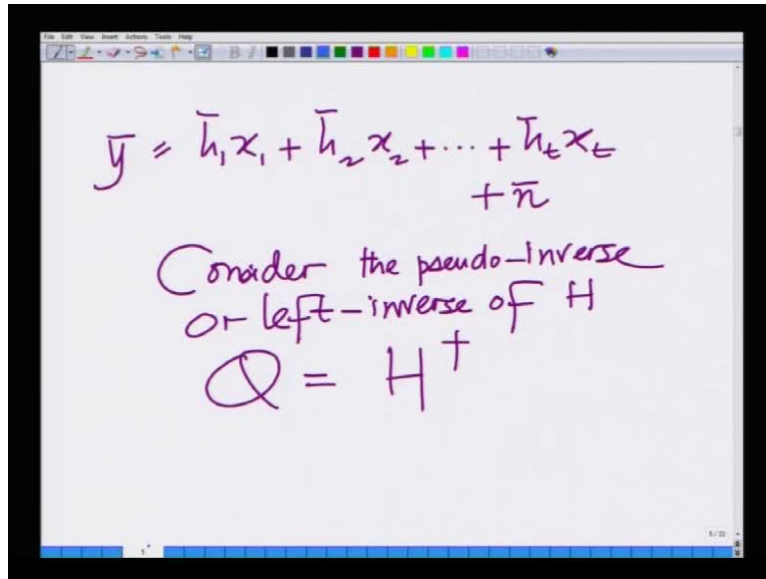 File Edit View Insert Actions Tools Help
B I
ȳ = h̄₁x₁ + h̄₂x₂ + ⋯ + h̄ₜxₜ
+ n̄
Consider the pseudo-Inverse
or left-inverse of H
Q = H†
5
5/22